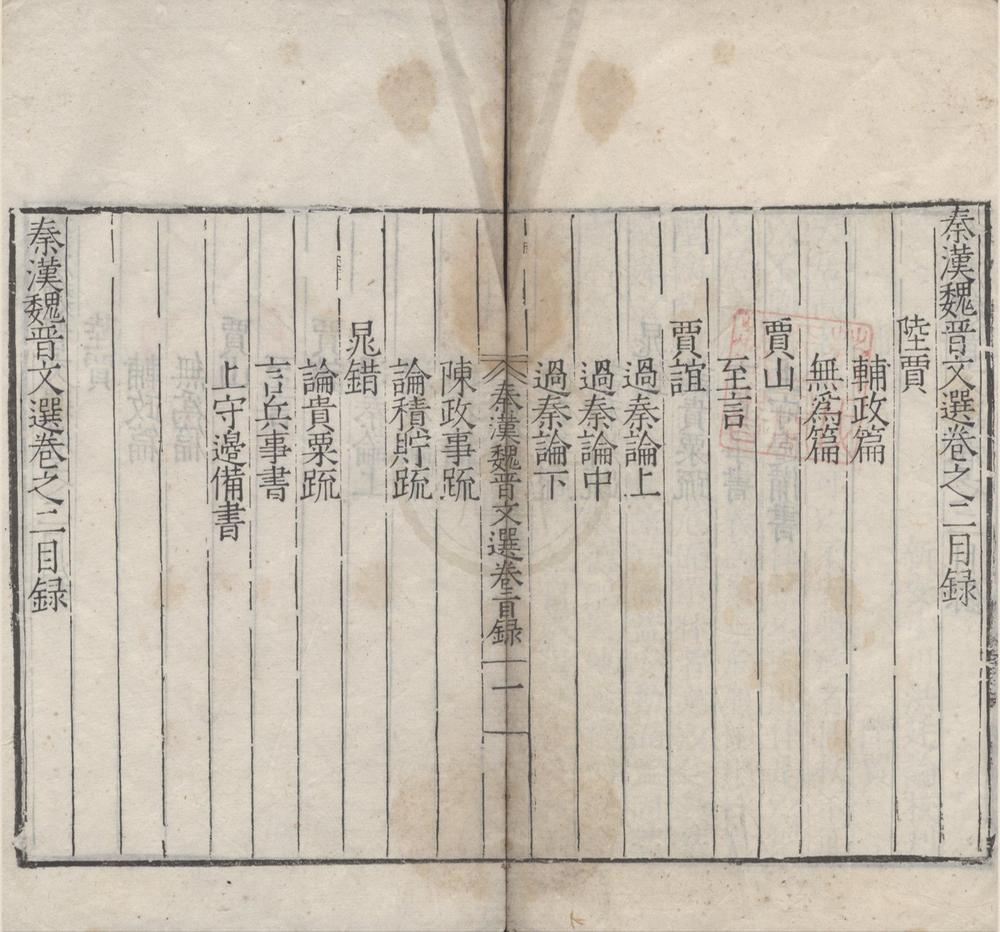 秦漢魏晋文選卷之二目録
陸賈
輔政篇
無爲篇
賈山
至言
賈誼
過秦論上
過秦論中
過秦論下
秦漢魏晋文選卷二目録
一
陳政事䟽
論積貯䟽
晁錯
論貴粟䟽
言兵事書
上守邊備書
秦漢魏晋文選卷之二目録